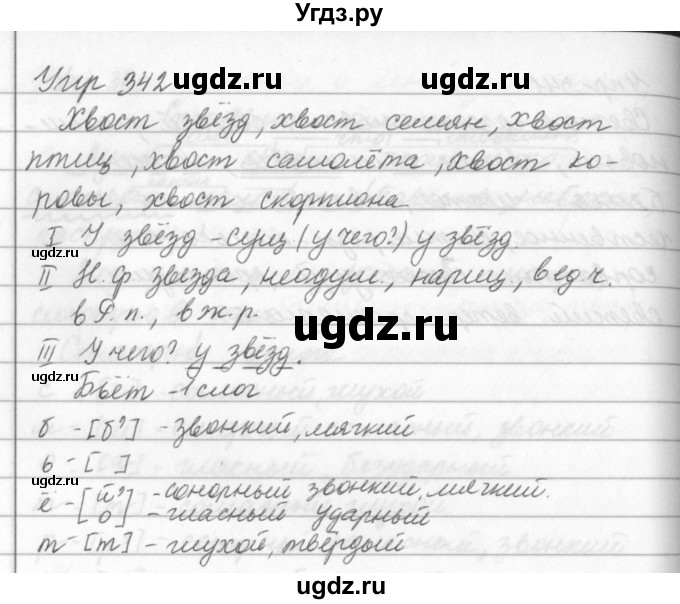 Угдз.ру
Упр 342
Хвост звёзд, хвост семян, хвост
птиц, хвост самолёта, хвост ко-
ровы, хвост скорпиона
I У звёзд - сущ (у чего?) у звёзд
II Н. ф звезда, неодуш., нариц, в ед.ч.
в Р.п., в ж.р.
III У чего? у звёзд.
Бьёт - 1 слог
б - [б'] - звонкий, мягкий
ь - [ ]
ё - [й' - сонорный звонкий, мягкий.
о] - гласный ударный
т - [т] - глухой, твёрдый
ugdz.ru
ugdz.ru
ugdz.ru
ugdz.ru
ugdz.ru
ugdz.ru
ugdz.ru
ugdz.ru
ugdz.ru